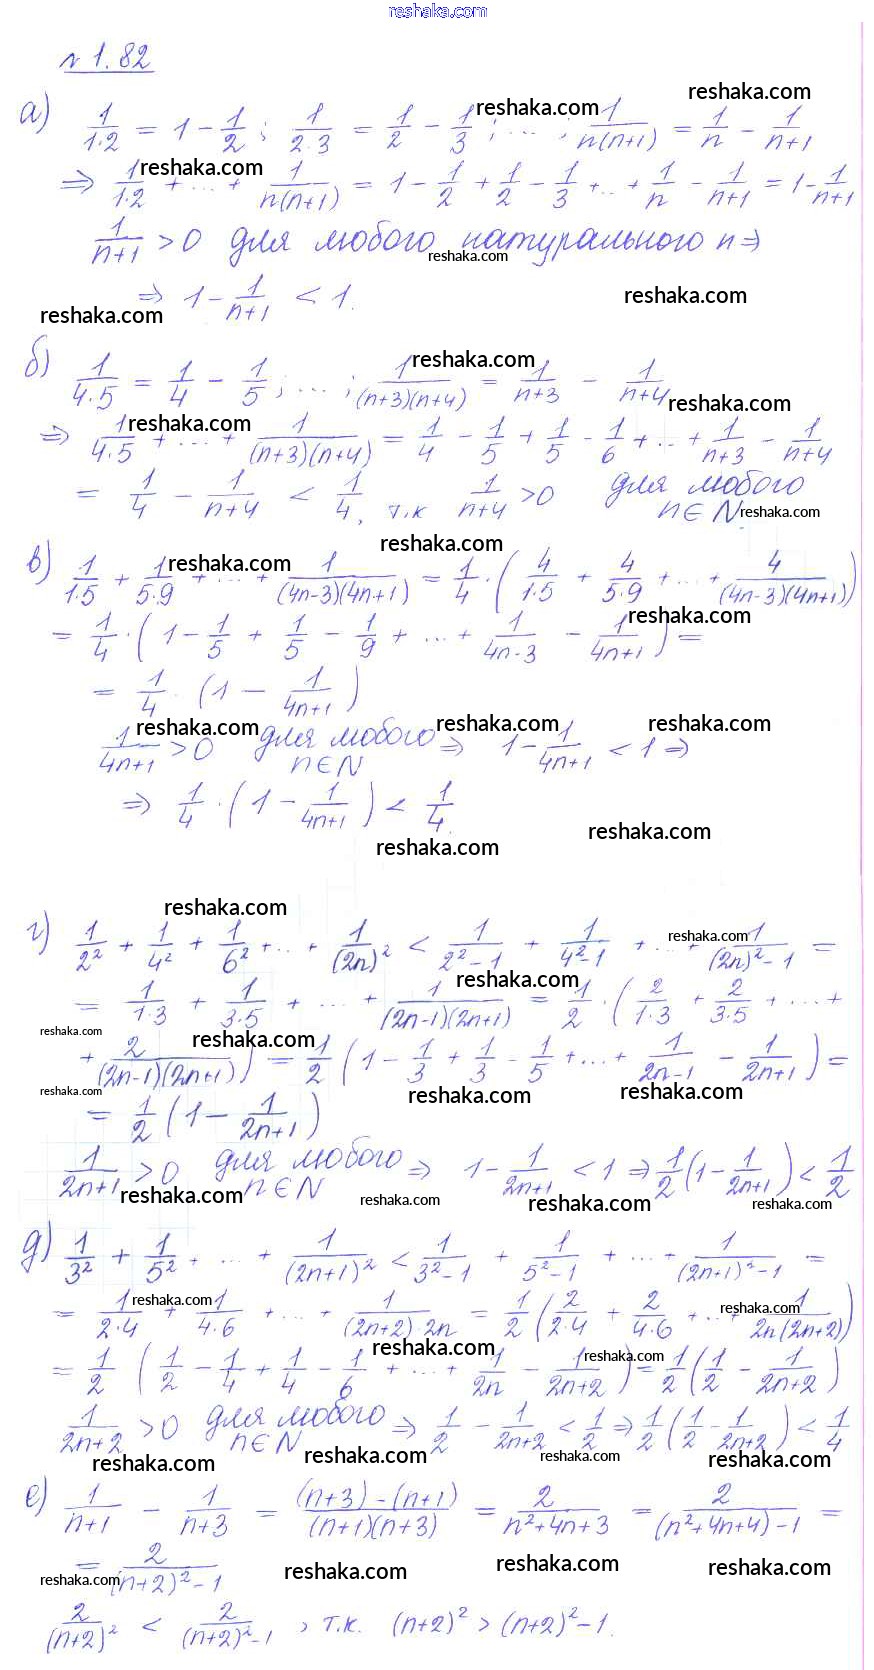 reshaka.com
№ 1.82
а) 1/(1·2) = 1 - 1/2 ; 1/(2·3) = 1/2 - 1/3 ; ... ; 1/(n(n+1)) = 1/n - 1/(n+1)
⇒ 1/(1·2) + ... + 1/(n(n+1)) = 1 - 1/2 + 1/2 - 1/3 + ... + 1/n - 1/(n+1) = 1 - 1/(n+1)
1/(n+1) > 0 для любого натурального n ⇒
⇒ 1 - 1/(n+1) < 1.
б) 1/(4·5) = 1/4 - 1/5 ; ... ; 1/((n+3)(n+4)) = 1/(n+3) - 1/(n+4)
⇒ 1/(4·5) + ... + 1/((n+3)(n+4)) = 1/4 - 1/5 + 1/5 - 1/6 + ... + 1/(n+3) - 1/(n+4)
= 1/4 - 1/(n+4) < 1/4, т.к 1/(n+4) > 0 для любого n∈N
в) 1/(1·5) + 1/(5·9) + ... + 1/((4n-3)(4n+1)) = 1/4 · (4/(1·5) + 4/(5·9) + ... + 4/((4n-3)(4n+1)))
= 1/4 · (1 - 1/5 + 1/5 - 1/9 + ... + 1/(4n-3) - 1/(4n+1)) =
= 1/4 · (1 - 1/(4n+1))
1/(4n+1) > 0 для любого n∈N ⇒ 1 - 1/(4n+1) < 1 ⇒
⇒ 1/4 · (1 - 1/(4n+1)) < 1/4.
г) 1/2² + 1/4² + 1/6² + ... + 1/(2n)² < 1/(2²-1) + 1/(4²-1) + ... + 1/((2n)²-1) =
= 1/(1·3) + 1/(3·5) + ... + 1/((2n-1)(2n+1)) = 1/2 · (2/(1·3) + 2/(3·5) + ... +
+ 2/((2n-1)(2n+1))) = 1/2 (1 - 1/3 + 1/3 - 1/5 + ... + 1/(2n-1) - 1/(2n+1)) =
= 1/2 (1 - 1/(2n+1))
1/(2n+1) > 0 для любого n∈N ⇒ 1 - 1/(2n+1) < 1 ⇒ 1/2 (1 - 1/(2n+1)) < 1/2
д) 1/3² + 1/5² + ... + 1/(2n+1)² < 1/(3²-1) + 1/(5²-1) + ... + 1/((2n+1)²-1) =
= 1/(2·4) + 1/(4·6) + ... + 1/((2n+2)·2n) = 1/2 (2/(2·4) + 2/(4·6) + ... + 1/(2n(2n+2)))
= 1/2 (1/2 - 1/4 + 1/4 - 1/6 + ... + 1/2n - 1/(2n+2)) = 1/2 (1/2 - 1/(2n+2))
1/(2n+2) > 0 для любого n∈N ⇒ 1/2 - 1/(2n+2) < 1/2 ⇒ 1/2 (1/2 - 1/(2n+2)) < 1/4
е) 1/(n+1) - 1/(n+3) = ((n+3)-(n+1))/((n+1)(n+3)) = 2/(n²+4n+3) = 2/((n²+4n+4)-1) =
= 2/((n+2)²-1)
2/(n+2)² < 2/((n+2)²-1) , т.к. (n+2)² > (n+2)²-1.